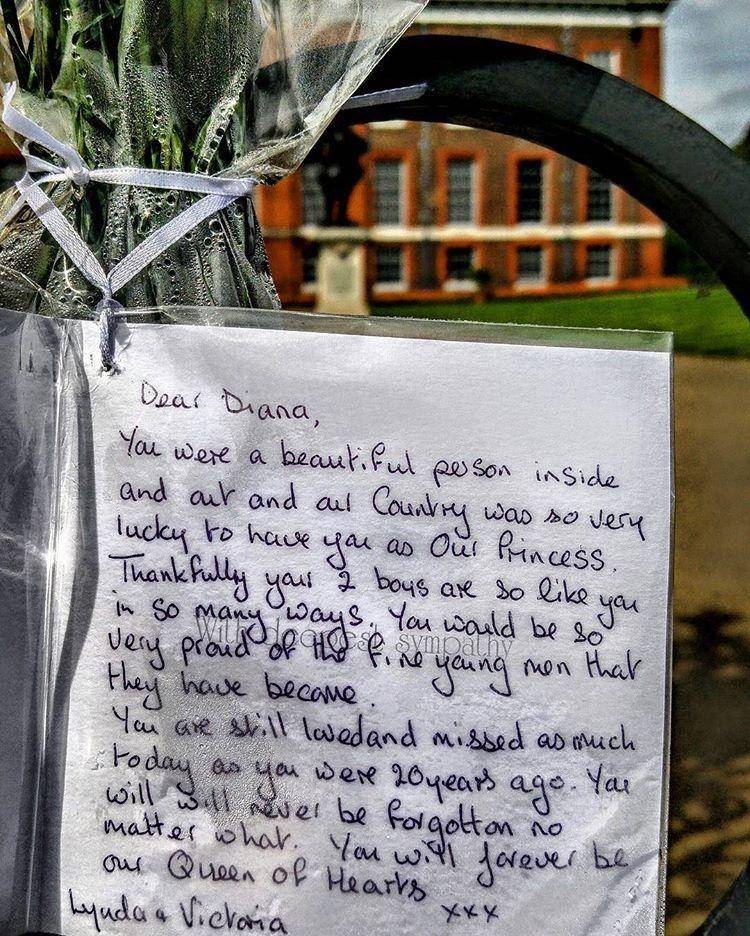 Dear Diana,
You were a beautiful person inside
and out and our Country was so very
lucky to have you as Our Princess.
Thankfully your 2 boys are so like you
in so many ways. You would be so
With deepest sympathy
very proud of the fine young men that
they have become.
You are still lovedand missed as much
today as you were 20 years ago. You
will will never be forgotton no
matter what. You will forever be
our Queen of Hearts
xxx
Lynda & Victoria